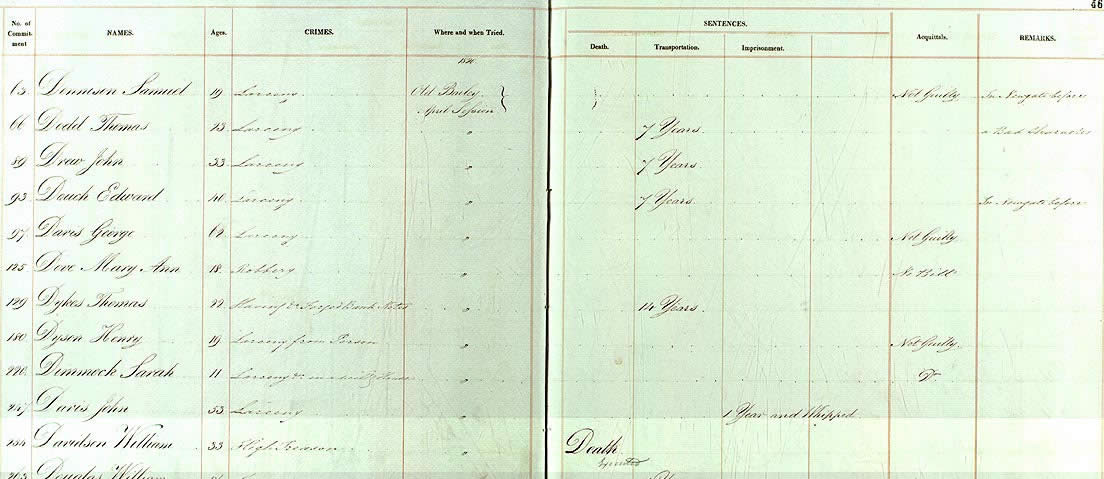 46
SENTENCES.
No. of Commit- ment NAMES. Ages. CRIMES. Where and when Tried. Death. Transportation. Imprisonment. Acquittals. REMARKS.
1820
63 Dennison Samuel 19 Larceny Old Bailey April Session Not Guilty In Newgate before
66 Dodd Thomas 23 Larceny " 7 Years a Bad
89 Drew John 33 Larceny " 7 Years
93 Douch Edward 40 Larceny " 7 Years In Newgate before
97 Davis George 62 Larceny " Not Guilty
125 Dove Mary Ann 18 Robbery " No Bill
129 Dykes Thomas 22 Having Forged Bank Notes " 14 Years
180 Dyson Henry 19 Larceny from Person " Not Guilty
220 Dimmock Sarah 11 Larceny in a House " Do
247 Davis John 53 Larceny " 1 Year and Whipped
Davidson William 33 High Treason " Death
Executed
Douglas William